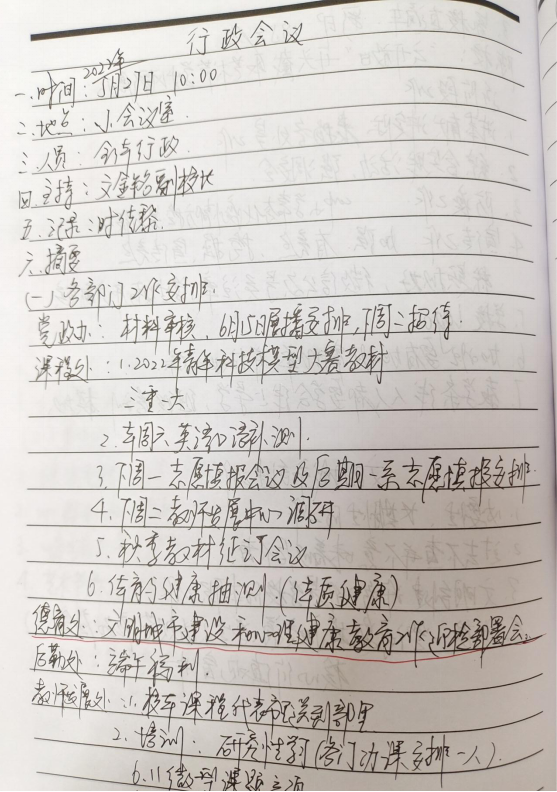 行政会议
一.时间:2022年5月27日 10:00
二.地点:小会议室
三.人员:全占行政
四.主持:文金铭副校长
五.记录:时倩
六.摘要
(一)各部门工作安排.
党政办:材料审核、6月15日展播安排,下周二招待
课程处:1.2022年青年科技模型大赛教材
三重一大
2.本周六英语口语补测.
3.下周一志愿填报会议及后期一系志愿填报安排.
4.下周二教师发展中心调研
5.秋季教材征订会议
6.体育与健康抽测.(体质健康)
德育处:文明城市建设和心性健康教育工作迎检部署会.
后勤处:端午福利.
教师发展处:1.校本课程代表市送到部里
2.培训:研究性学习(各门功课安排一人).
6.11微型课题立项